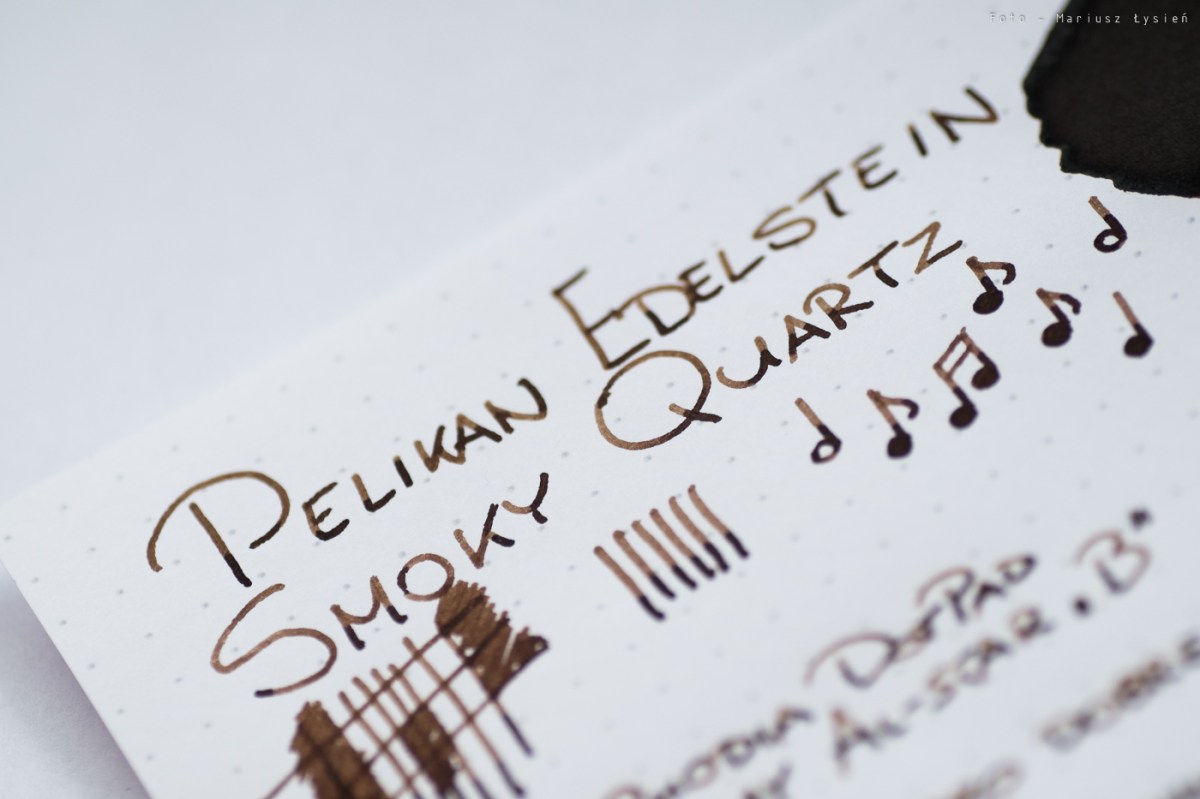 Foto - Mariusz Łysień
PELIKAN EDELSTEIN
SMOKY QUARTZ
DOTPAD
AL-STAR "B"